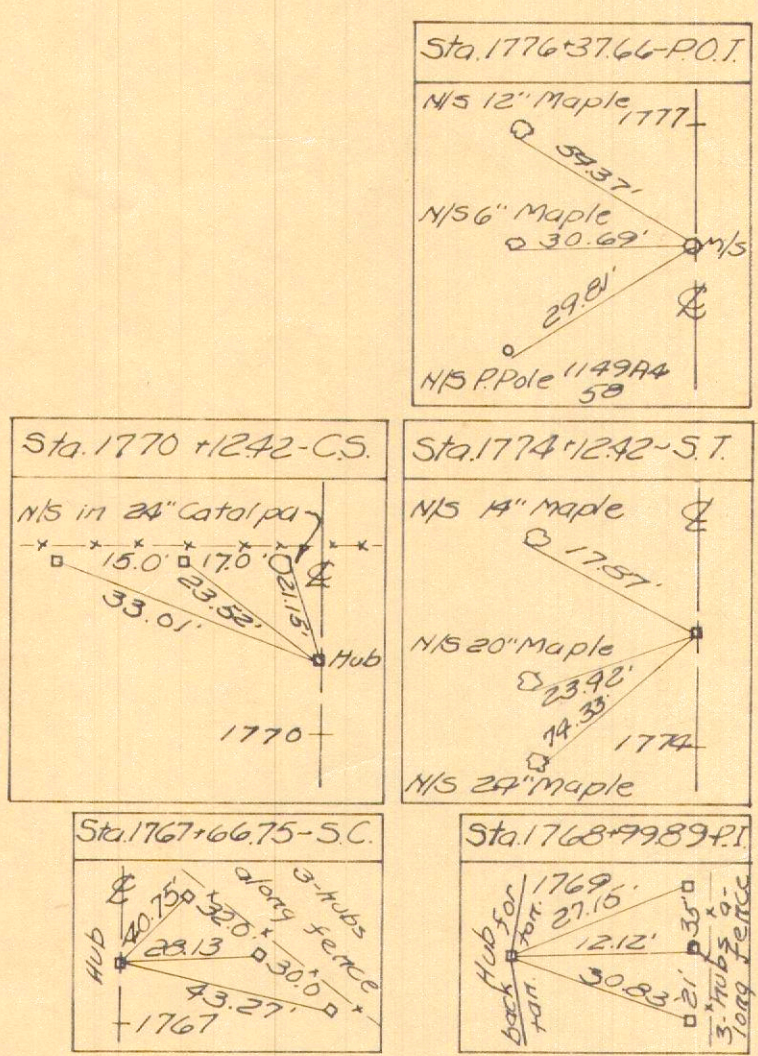 Sta. 1776+37.66-P.O.T.
N/S 12" Maple
1777
59.37'
N/S 6" Maple
30.69'
M/S
℄
29.81'
N/S P.Pole 1149A4
58
Sta. 1770 +12.42-C.S.
N/S in 24" Catalpa
15.0'
17.0'
℄
21.15'
23.52'
33.01'
Hub
1770
Sta. 1774+12.42-S.T.
N/S 14" Maple
℄
17.87'
N/S 20" Maple
23.92'
74.33
1774
N/S 24" Maple
Sta. 1767+66.75-S.C.
℄
40.75'
32.0'
3-hubs
along fence
Hub
28.13
30.0
43.27'
1767
Sta. 1768+99.89-P.I.
1769
27.15'
Hub for
back tan.
tan.
12.12'
35'
30.83'
21'
3-hubs a-
long fence